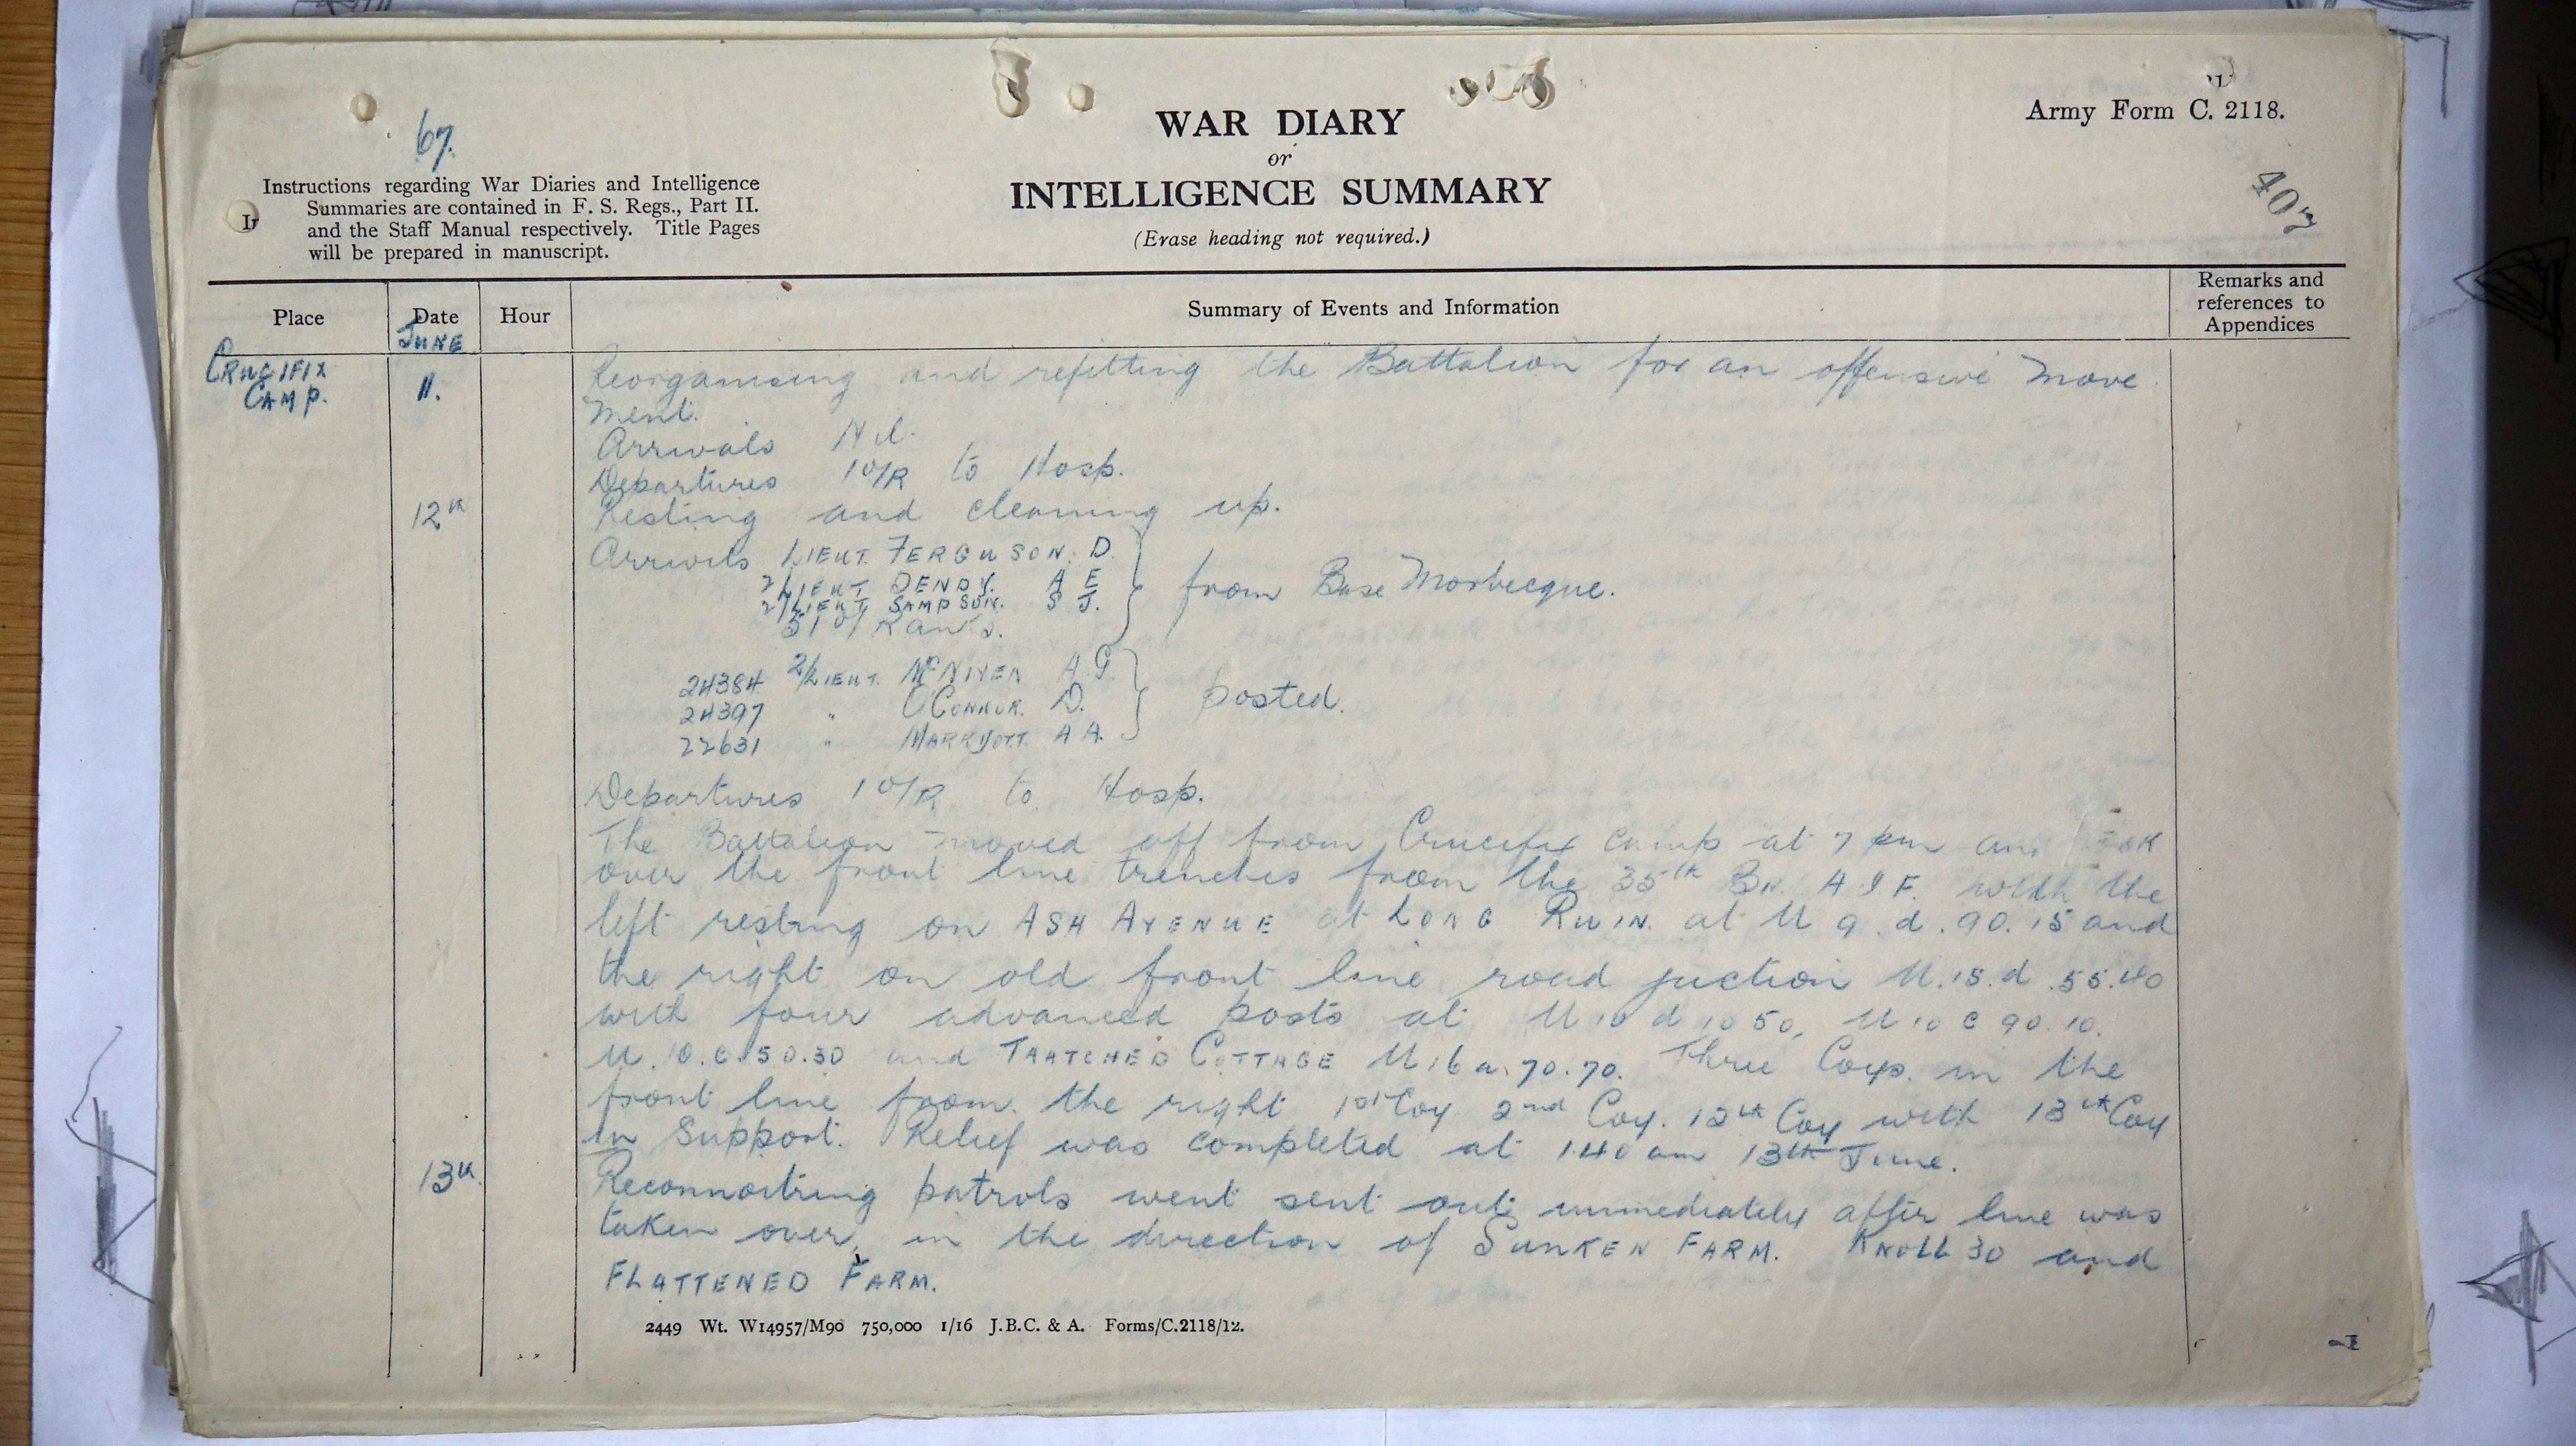 Army Form C. 2118.
67.
WAR DIARY
or
INTELLIGENCE SUMMARY
(Erase heading not required.)
407
Instructions regarding War Diaries and Intelligence
Summaries are contained in F. S. Regs., Part II.
and the Staff Manual respectively. Title Pages
will be prepared in manuscript.
Place Date Hour Summary of Events and Information Remarks and references to Appendices
JUNE
CRUCIFIX CAMP. 11. Reorganising and refitting the Battalion for an offensive move
ment.
Arrivals Nil.
Departures 1 O/R to Hosp.
12th Resting and cleaning up.
Arrivals LIEUT. FERGUSON. D.
2/LIEUT DENDY. A E
2/LIEUT SAMPSON. S J.
51 O/Ranks.
from Base Morbecque.
24384 2/LIEUT. McNIVEN A G.
24397 " O'CONNOR. D.
22631 " MARRYOTT. A A.
posted.
Departures 1 O/R to Hosp.
The Battalion moved off from Crucifix Camp at 7 pm and took
over the front line trenches from the 35th BN. A I F. with the
left resting on ASH AVENUE at LONG RUIN. at U 9. d. 90. 15 and
the right on old front line road juction U. 15. d. 55. 40
with four advanced posts at U 10 d 10 50, U 10 c 90. 10.
U. 10. c. 50. 30 and THATCHED COTTAGE U 16 a. 70. 70. Three Coys. in the
front line from the right 1st Coy 2nd Coy. 12th Coy with 13th Coy
in Support. Relief was completed at 1.40 am 13th June.
13th. Reconnoitring patrols went sent out immediately after line was
taken over, in the direction of SUNKEN FARM. KNOLL 30 and
FLATTENED FARM.
2449 Wt. W14957/M90 750,000 1/16 J.B.C. & A. Forms/C.2118/12.